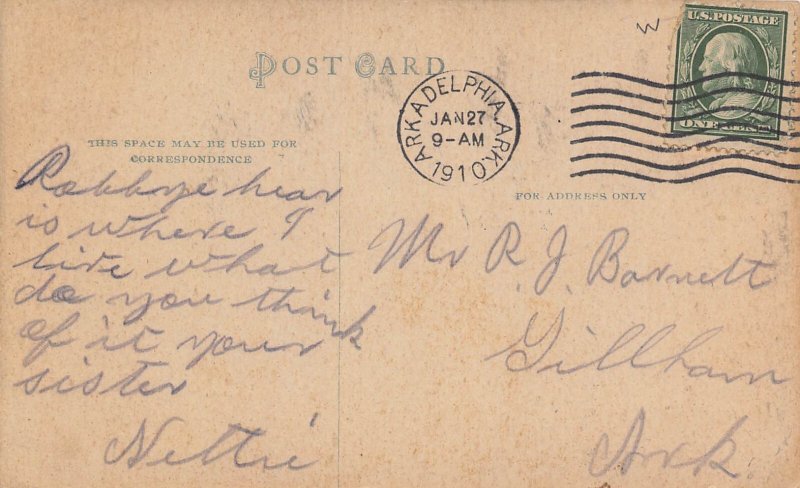 W
U.S. POSTAGE
POST CARD
ARKADELPHIA, ARK.
JAN 27
9-AM
1910
THIS SPACE MAY BE USED FOR
CORRESPONDENCE
FOR ADDRESS ONLY
Robbye hear
is where I
live what
do you think
of it your
sister
Nettie
Mr R. J. Barnett
Gillham
Ark.